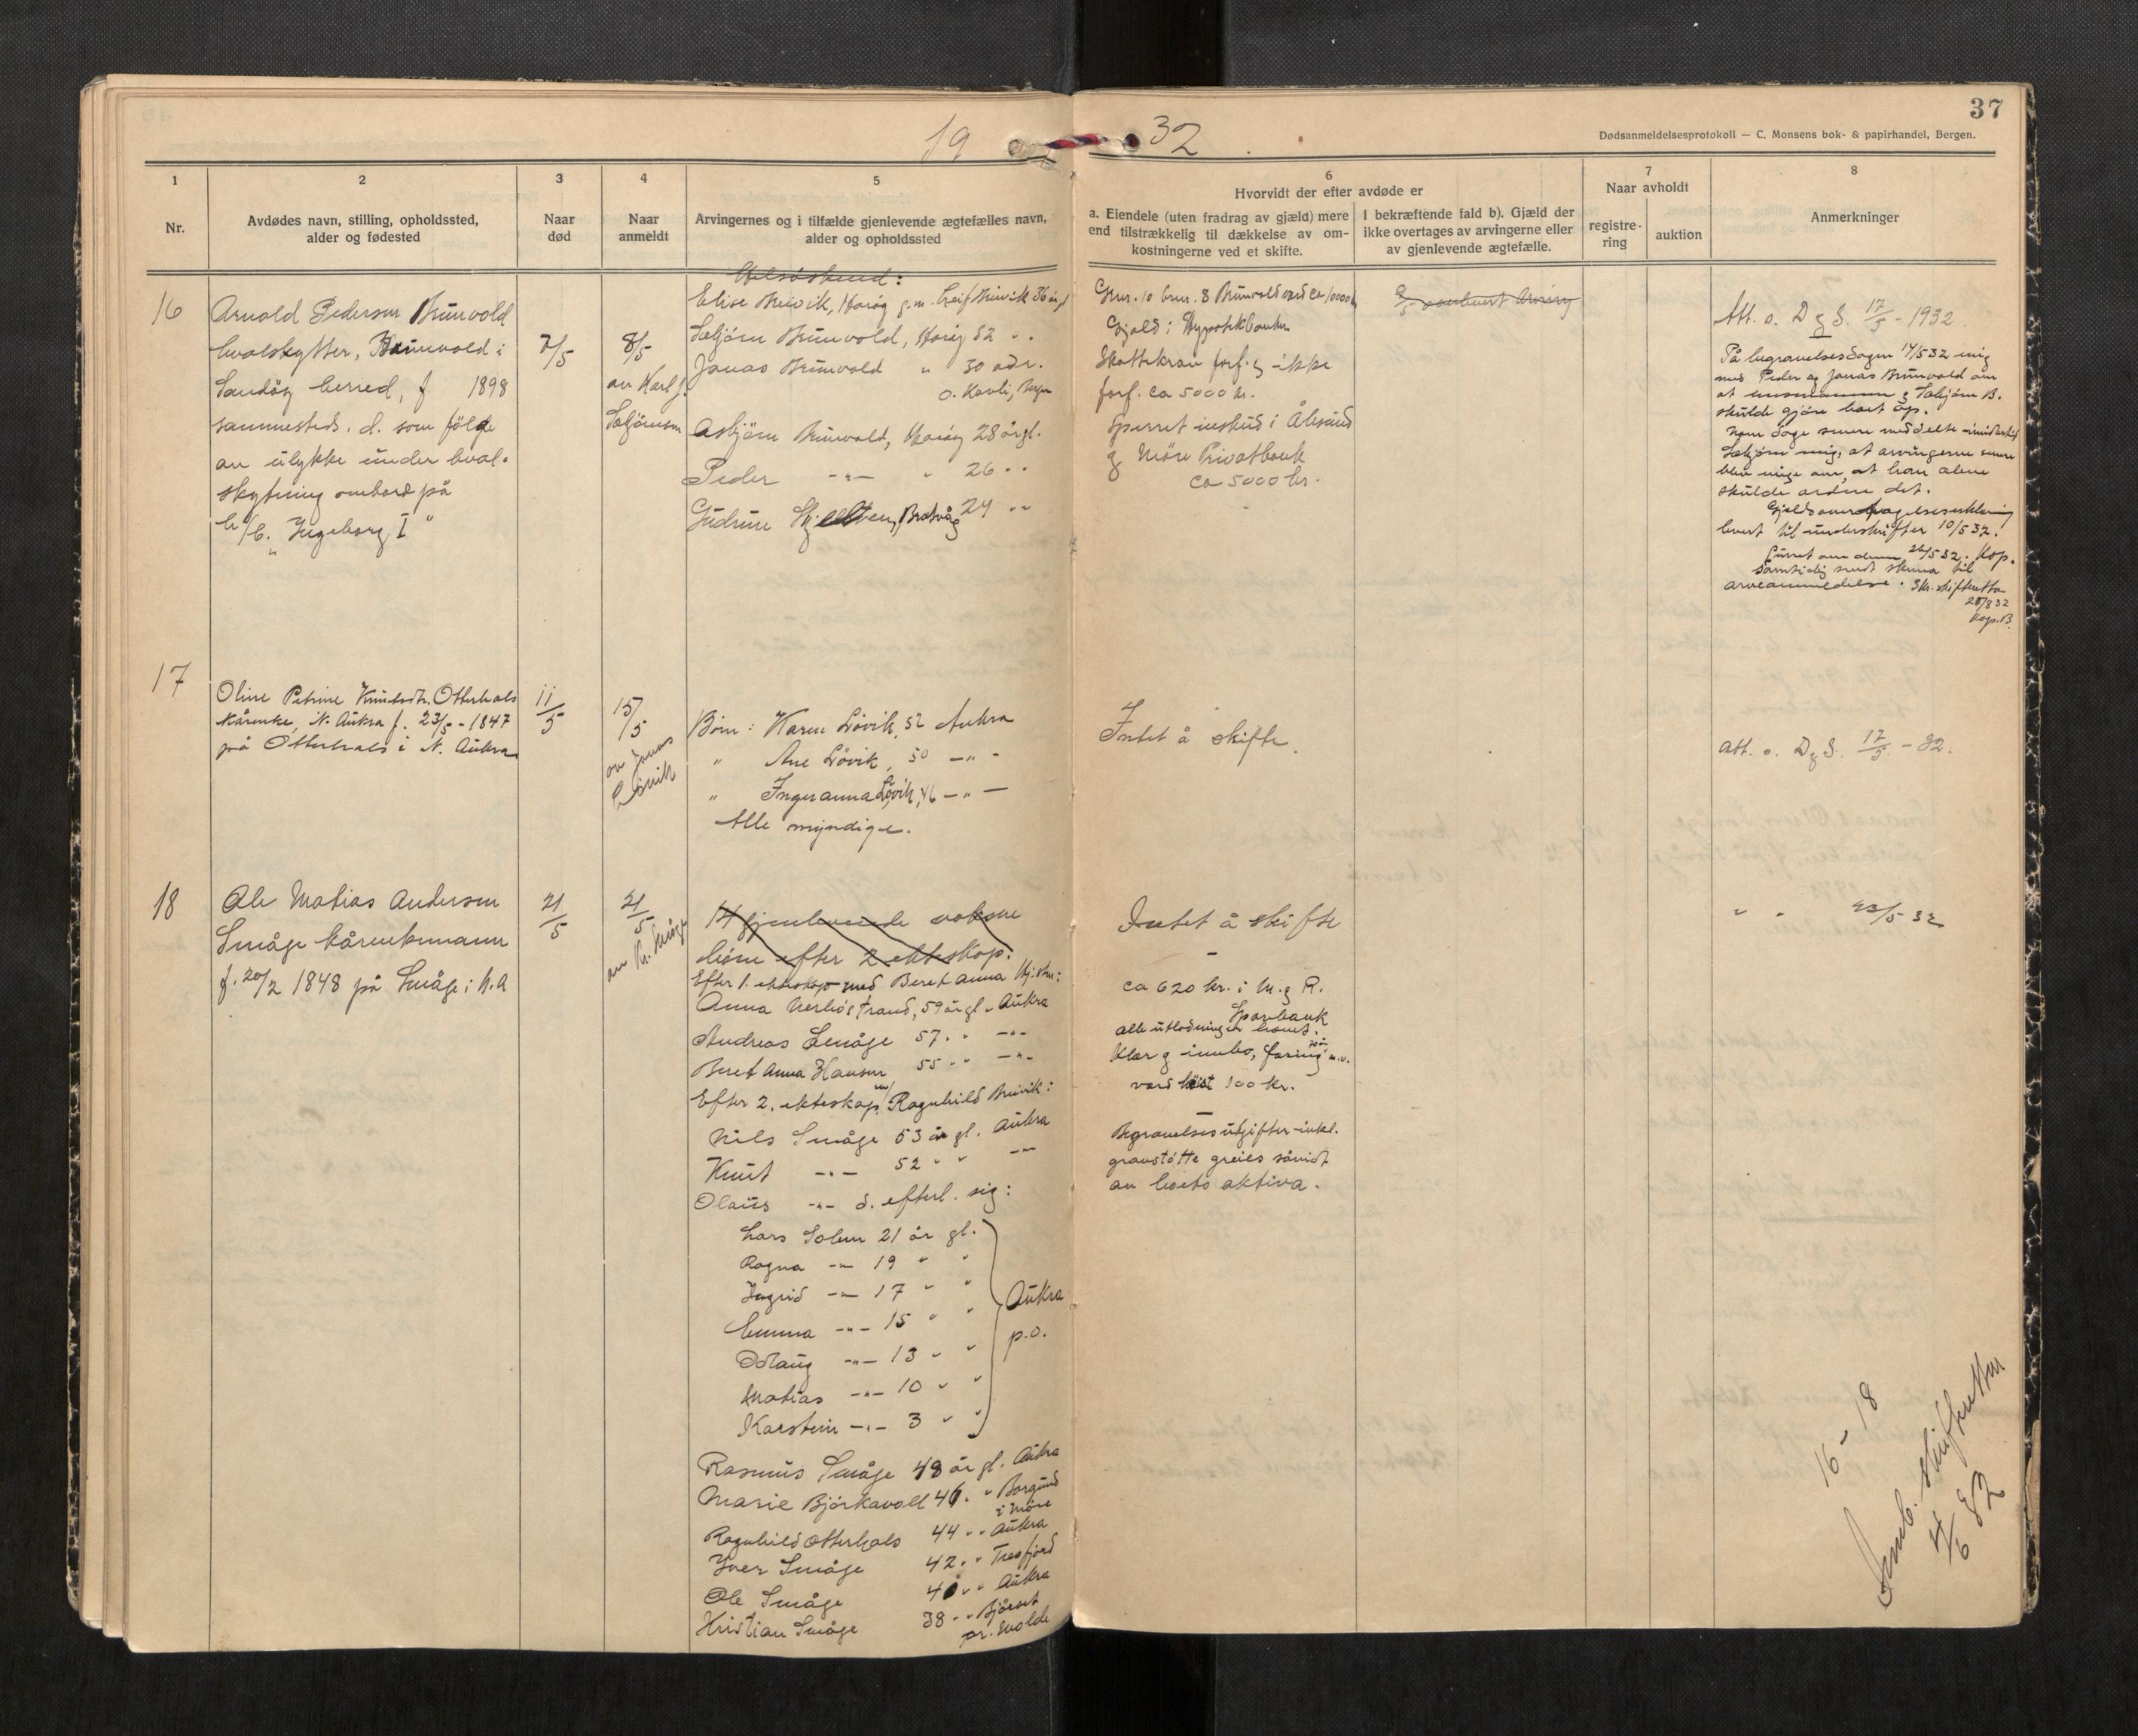 19 32
37
Dødsanmeldelsesprotokoll — C. Monsens bok- & papirhandel, Bergen.
1
Nr.
2
Avdødes navn, stilling, opholdssted,
alder og fødested
3
Naar
død
4
Naar
anmeldt
5
Arvingernes og i tilfælde gjenlevende ægtefælles navn,
alder og opholdssted
6
Hvorvidt der efter avdøde er
a. Eiendele (uten fradrag av gjæld) mere
end tilstrækkelig til dækkelse av om-
kostningerne ved et skifte.
I bekræftende fald b). Gjæld der
ikke overtages av arvingerne eller
av gjenlevende ægtefælle.
7
Naar avholdt
registre-
ring
auktion
8
Anmerkninger
16
Arnold Pedersen Brunvold
hvalskytter, Brunvold i
Sandøy herred, f 1898
sammesteds. d. som følge
av ulykke under hval-
skytning ombord på
h/b. "Ingeborg I"
7/5
8/5
av Karl J.
Helsøskend:
Elise Breivik, Harøy g.m. Leif Breivik 36 år
Brunvold, Harøy 32 " "
Jonas Brunvold " 30 adr.
O. Kavli, Bergen
Asbjørn Brunvold, Harøy 28 år gl.
Peder -"- " 26 " "
Gudrun Hjellten, Bratvåg 24 " "
Grnr. 10 brnr. 8 Brunvold verd ca 10000
Gjeld i Hypotekbanken
Skattekrav forf. og ikke
forf. ca 5000 kr.
Sperret inskud i Ålesund
og Møre Privatbank
ca 5000 kr.
Att. o. D og S. 17/5 - 1932.
På begravelsesdagen 14/5 32 enig
med Peder og Jonas Brunvold om
at
skulde gjøre boet op.
Nom dage senere meddelte imidlertid
mig, at arvingerne senere
blev enige om, at han alene
skulde ordne det.
Gjeldsovertagelseserklæring
levert til underskrifter 10/5 32.
Purret om denne 26/5 32. Kop.
Samtidig sendt skema til
arveanmeldelse. Skr. skifteretten
Kop.B.
17
Oline Petrine Knutsdtr. Otterhals
kårenke, N. Aukra f. 23/5 - 1847
på Otterhals i N. Aukra
11/5
15/5
av Jonas
Løvik
Børn: Karen Løvik, 52 Aukra
" Ane Løvik, 50 -"-
" Ingeranna Løvik, 46 -"-
Alle myndige.
Intet å skifte.
Att. o. D og S. 17/5 - 32.
18
Ole Matias Andersen
Småge kårenkemann
f. 20/2 1848 på Småge i N.A
21/5
21/5
av Kr. Småge
14 gjenlevende voksne
børn efter 2 ekteskap:
Efter 1. ekteskap med Beret Anna
Anna Nerbøstrand, 59 år gl. Aukra
Andreas Småge 57 " " -"-
Beret Anna Hansen 55 " " -"-
Efter 2. ekteskap m/ Ragnhild Breivik:
Nils Småge 53 år gl. Aukra
Knut -"- 52 " " -"-
Olaus -"- d. efterl. sig:
Lars Solem 21 år gl.
Ragna -"- 19 " "
Ingrid -"- 17 " "
Emma -"- 15 " "
Odlaug -"- 13 " "
Matias -"- 10 " "
Karstein -"- 3 " "
Aukra
p.o.
Rasmus Småge 48 år gl. Aukra
Marie Bjørkavoll 46 " " Borgund
i Møre
Ragnhild Otterhals 44 " " Aukra
Iver Småge 42 " " Tresfjord
Ole Småge 40 " " Aukra
Kristian Småge 38 " " Bjørset
pr. Molde
Intet å skifte
-
ca 620 kr. i M. og R.
Sparebank
Klær og innbo,
verd høist 100 kr.
-
Begravelsesutgifter inkl.
gravstøtte greies såvidt
av boets aktiva.
" " 23/5 32
16 - 18
skifteretten
4/6 32